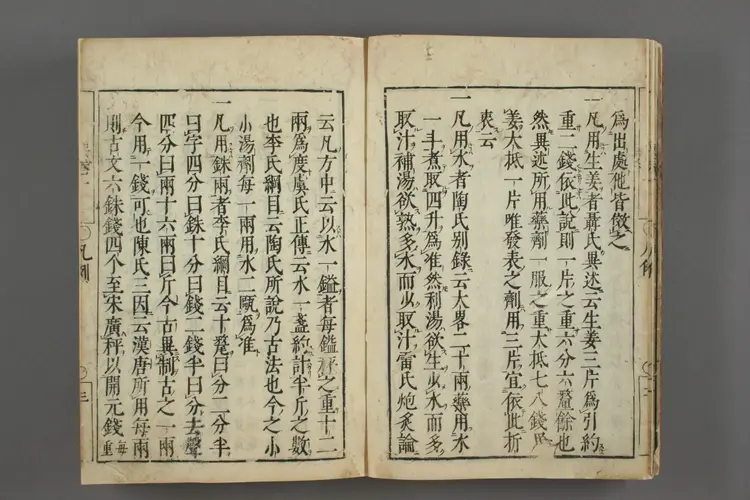 為出處他皆倣之
一凡用生姜者聶氏異述云生姜三片為引約
重二錢依此說則一片之重六分六釐餘也
然異述所用藥劑一服之重大抵七八錢
姜大抵一片唯發表之劑用三片宜依此折
衷云
一凡用水者陶氏別錄云大畧二十兩藥用水
一斗煮取四升為准然利湯欲生少水而多
取汁補湯欲熟多水而少取汁雷氏炮炙論
云凡方中云以水一鎰者每鎰秤之重十二
兩為度虞氏正傳云水一盞約計半斤之數
也李氏綱目云陶氏所說乃古法也今之小
小湯劑每一兩用水二甌為准
一凡用銖兩者李氏綱目云十釐曰分二分半
曰字四分曰銖十分曰錢二錢半曰分去聲
四分曰兩十六兩曰斤今古異制古之一兩
今用一錢可也陳氏三因云漢唐所用每兩
則古文六銖錢四个至宋廣秤以開元錢每重
凡例
三